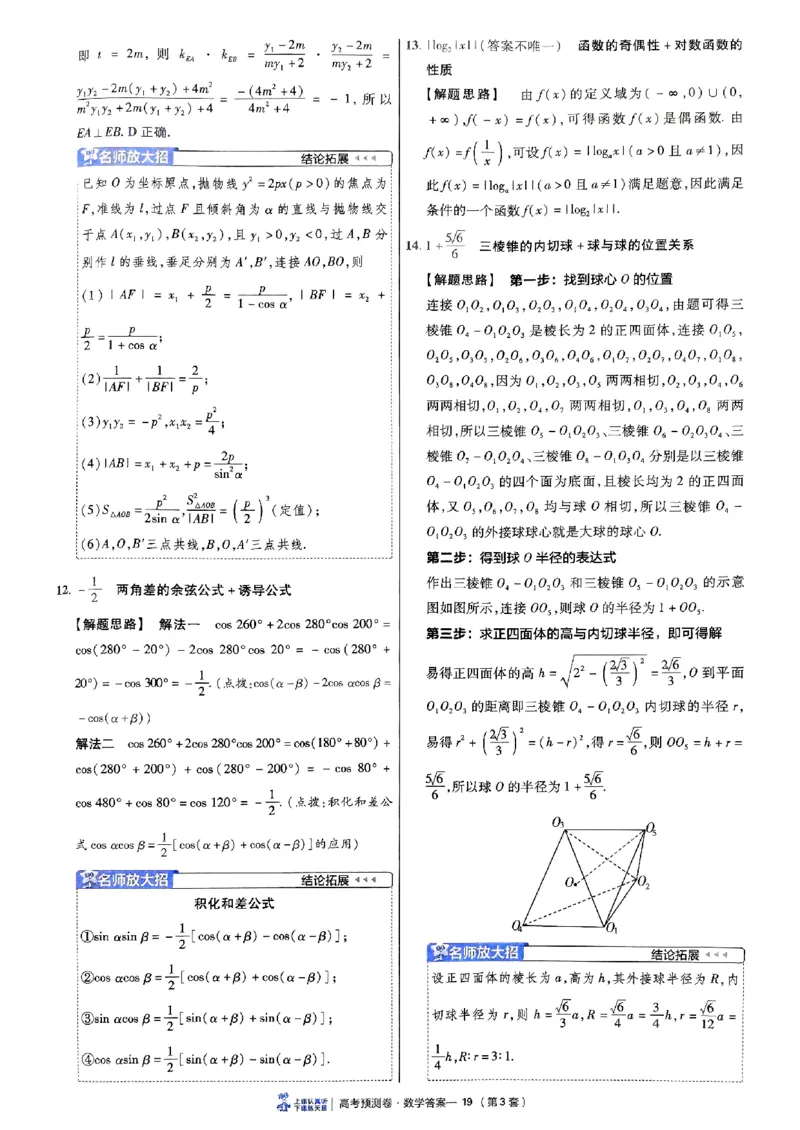 即 t = 2m, 则 k_{EA} · k_{EB} = \frac{y_1-2m}{my_1+2} · \frac{y_2-2m}{my_2+2} =
\frac{y_1y_2-2m(y_1+y_2)+4m^2}{m^2y_1y_2+2m(y_1+y_2)+4} = \frac{-(4m^2+4)}{4m^2+4} = -1, 所以
EA⊥EB. D 正确.
名师放大招 结论拓展
已知 O 为坐标原点,抛物线 y^2=2px(p>0)的焦点为
F,准线为 l,过点 F 且倾斜角为 α 的直线与抛物线交
于点 A(x_1,y_1),B(x_2,y_2),且 y_1>0,y_2<0,过 A,B 分
别作 l 的垂线,垂足分别为 A',B',连接 AO,BO,则
(1)|AF| = x_1 + \frac{p}{2} = \frac{p}{1-cos α}, |BF| = x_2 +
\frac{p}{2}=\frac{p}{1+cos α};
(2)\frac{1}{|AF|}+\frac{1}{|BF|}=\frac{2}{p};
(3)y_1y_2=-p^2,x_1x_2=\frac{p^2}{4};
(4)|AB|=x_1+x_2+p=\frac{2p}{sin^2α};
(5)S_{△AOB}=\frac{p^2}{2sin α},\frac{S^2_{△AOB}}{|AB|}=(\frac{p}{2})^3(定值);
(6)A,O,B'三点共线,B,O,A'三点共线.
12. -\frac{1}{2} 两角差的余弦公式+诱导公式
【解题思路】 解法一 cos 260°+2cos 280°cos 200°=
cos(280°-20°)-2cos 280°cos 20°=-cos(280°+
20°)=-cos 300°=-\frac{1}{2}.(点拨:cos(α-β)-2cos αcos β=
-cos(α+β))
解法二 cos 260°+2cos 280°cos 200°=cos(180°+80°)+
cos(280°+200°)+cos(280°-200°)=-cos 80°+
cos 480°+cos 80°=cos 120°=-\frac{1}{2}.(点拨:积化和差公
式 cos αcos β=\frac{1}{2}[cos(α+β)+cos(α-β)]的应用)
名师放大招 结论拓展
积化和差公式
①sin αsin β=-\frac{1}{2}[cos(α+β)-cos(α-β)];
②cos αcos β=\frac{1}{2}[cos(α+β)+cos(α-β)];
③sin αcos β=\frac{1}{2}[sin(α+β)+sin(α-β)];
④cos αsin β=\frac{1}{2}[sin(α+β)-sin(α-β)].
13. |log_2|x||(答案不唯一) 函数的奇偶性+对数函数的
性质
【解题思路】 由 f(x)的定义域为(-∞,0)∪(0,
+∞),f(-x)=f(x),可得函数 f(x)是偶函数. 由
f(x)=f(\frac{1}{x}),可设 f(x)=|log_a x|(a>0 且 a≠1),因
此 f(x)=|log_a|x||(a>0 且 a≠1)满足题意,因此满足
条件的一个函数 f(x)=|log_2|x||.
14. 1+\frac{5√6}{6} 三棱锥的内切球+球与球的位置关系
【解题思路】 第一步:找到球心 O 的位置
连接 O_1O_2,O_1O_3,O_2O_3,O_1O_4,O_2O_4,O_3O_4,由题可得三
棱锥 O_4-O_1O_2O_3 是棱长为 2 的正四面体,连接 O_1O_5,
O_2O_5,O_3O_5,O_2O_6,O_3O_6,O_4O_6,O_1O_7,O_2O_7,O_4O_7,O_1O_8,
O_3O_8,O_4O_8,因为 O_1,O_2,O_3,O_5 两两相切,O_2,O_3,O_4,O_6
两两相切,O_1,O_2,O_4,O_7 两两相切,O_1,O_3,O_4,O_8 两两
相切,所以三棱锥 O_5-O_1O_2O_3、三棱锥 O_6-O_2O_3O_4、三
棱锥 O_7-O_1O_2O_4、三棱锥 O_8-O_1O_3O_4 分别是以三棱锥
O_4-O_1O_2O_3 的四个面为底面,且棱长均为 2 的正四面
体,又 O_5,O_6,O_7,O_8 均与球 O 相切,所以三棱锥 O_4-
O_1O_2O_3 的外接球球心就是大球的球心 O.
第二步:得到球 O 半径的表达式
作出三棱锥 O_4-O_1O_2O_3 和三棱锥 O_5-O_1O_2O_3 的示意
图如图所示,连接 OO_5,则球 O 的半径为 1+OO_5.
第三步:求正四面体的高与内切球半径,即可得解
易得正四面体的高 h=\sqrt{2^2-(\frac{2√3}{3})^2}=\frac{2√6}{3},O 到平面
O_1O_2O_3 的距离即三棱锥 O_4-O_1O_2O_3 内切球的半径 r,
易得 r^2+(\frac{2√3}{3})^2=(h-r)^2,得 r=\frac{√6}{6},则 OO_5=h+r=
\frac{5√6}{6},所以球 O 的半径为 1+\frac{5√6}{6}.
O_3
O_5
O
O_2
O_4
O_1
名师放大招 结论拓展
设正四面体的棱长为 a,高为 h,其外接球半径为 R,内
切球半径为 r,则 h=\frac{√6}{3}a,R=\frac{√6}{4}a=\frac{3}{4}h,r=\frac{√6}{12}a=
\frac{1}{4}h,R:r=3:1.
上课认真听
下课练天星
高考预测卷·数学答案—19(第3套)